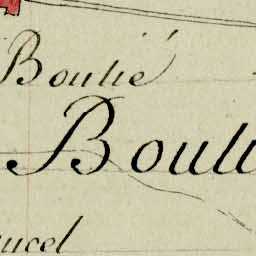 Boulié
Bouli
ucel